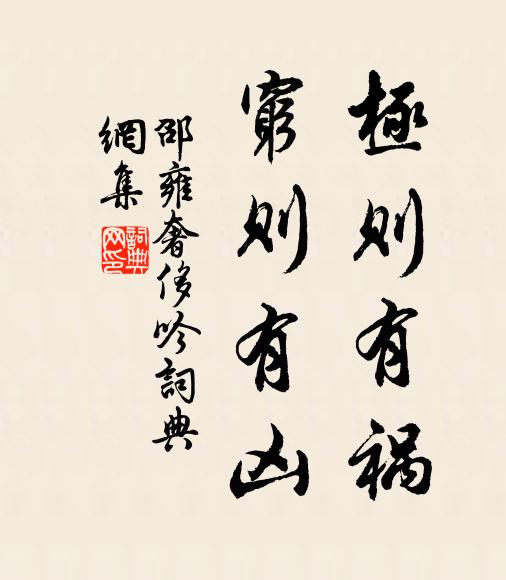 極則有禍
窮則有凶
邵雍奢侈吟詞典
網集
詞典
网印